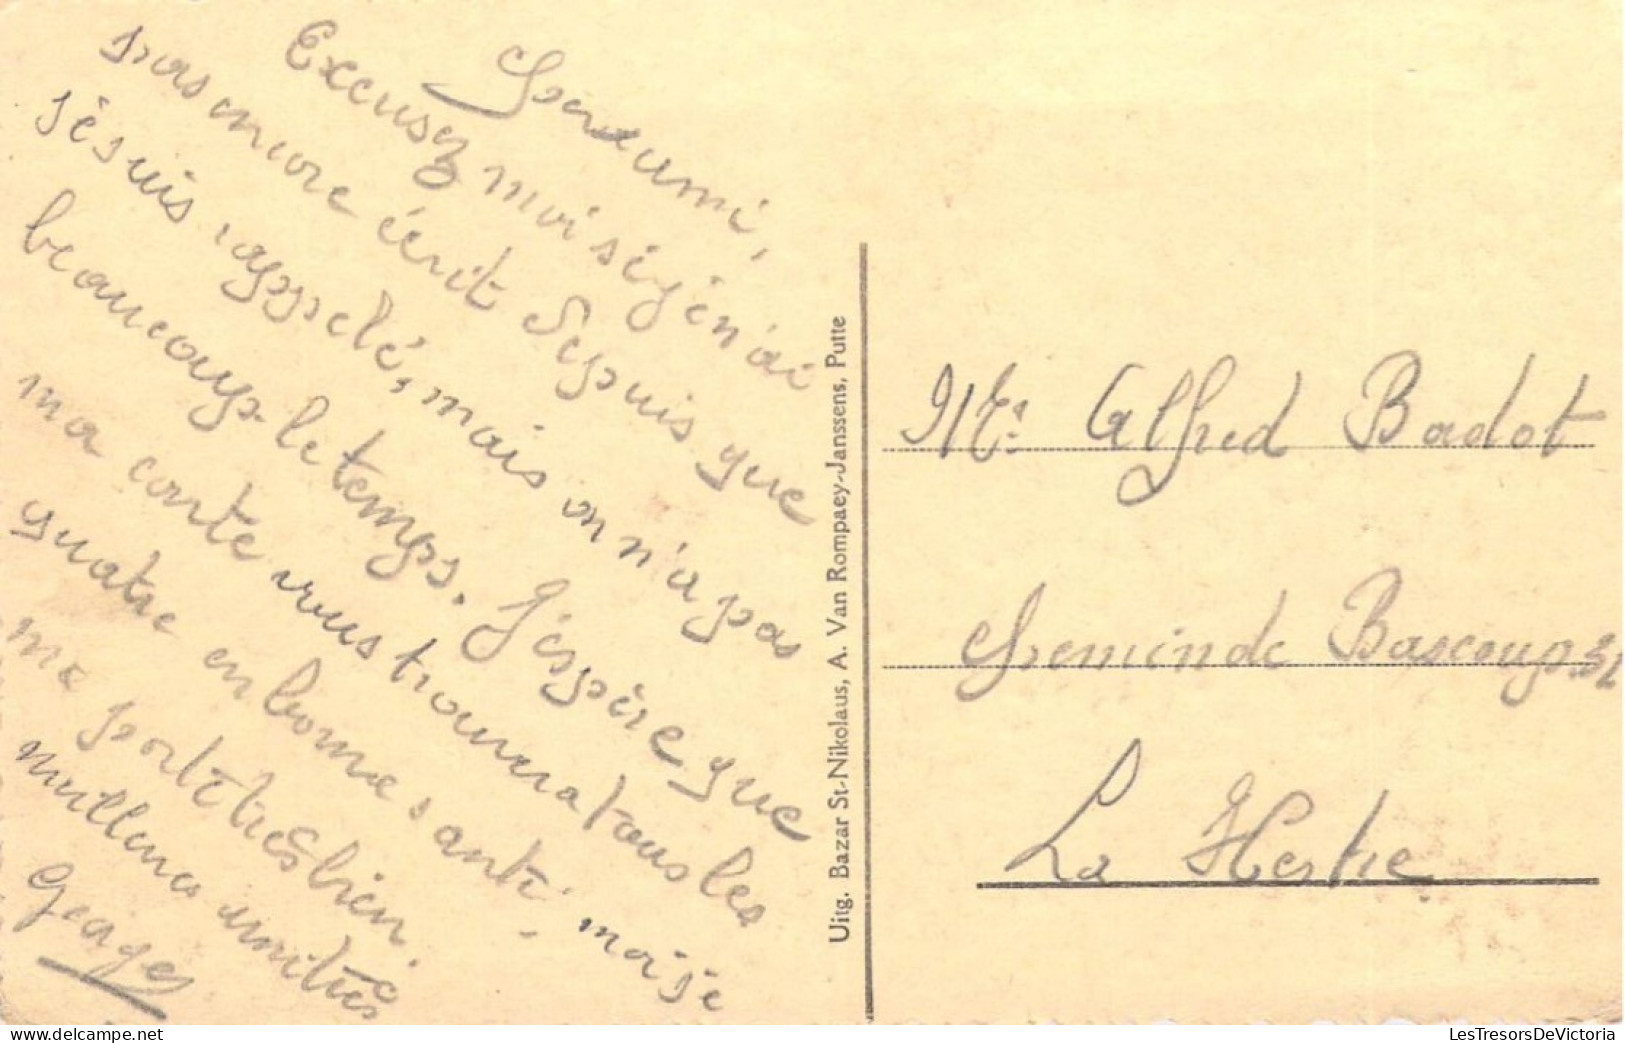 Cher ami,
Excusez moi si je n'ai
pas encore écrit depuis que
je suis rappelé, mais on n'a pas
beaucoup le temps. J'éspère que
ma carte vous trouvera tous les
quatre en bonne santé, mois je
me porte très bien.
meilleures amitiés
Georges
Uitg. Bazar St-Nikolaus, A. Van Rompaey-Janssens, Putte
Mr. Alfred Badot
Chemin de Bascoup 32
La Hestre
www.delcampe.net
LesTresorsDeVictoria